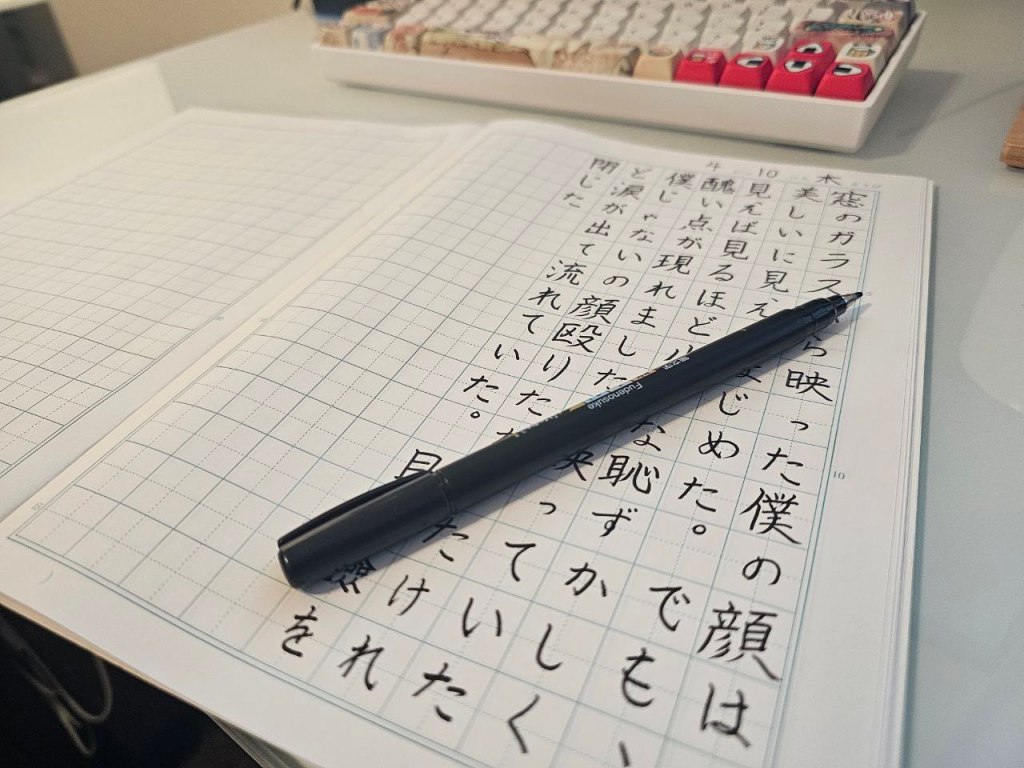 10 木
窓のガラス ら映った僕の顔は
美しいに見え じめた。でも、
見えば見るほど な恥ずかしく
醜い点が現れました 映っていた
僕じゃないの顔殴りた たけれ
ど涙が出て流れていた。 を
閉じた
10
Fudenosuke